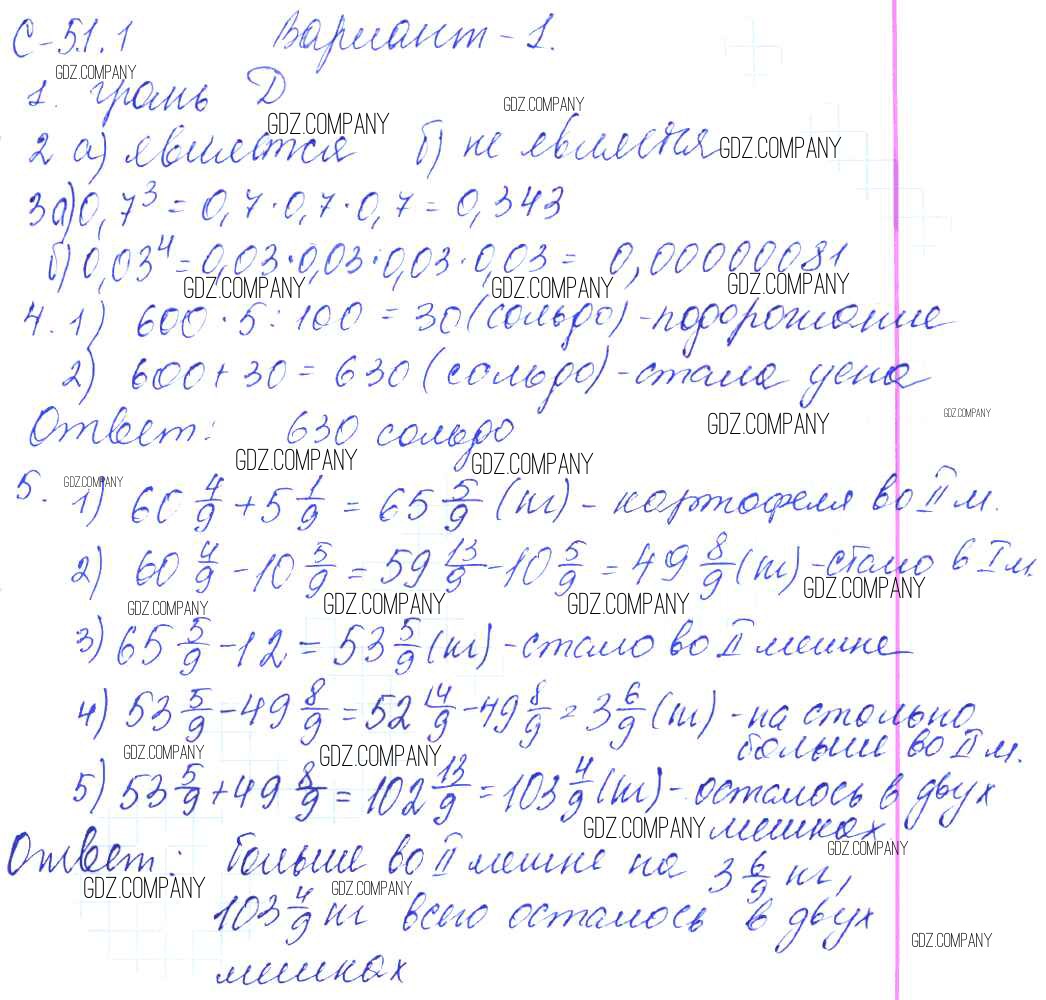 С-51.1 Вариант-1.
GDZ.COMPANY
1. грань D
GDZ.COMPANY GDZ.COMPANY
2 а) является б) не является GDZ.COMPANY
3а) 0,7³ = 0,7·0,7·0,7 = 0,343
б) 0,03⁴ = 0,03·0,03·0,03·0,03 = 0,00000081
GDZ.COMPANY GDZ.COMPANY GDZ.COMPANY
4. 1) 600·5:100 = 30 (сольдо) - подорожание
2) 600+30 = 630 (сольдо) - стала цена
Ответ: 630 сольдо GDZ.COMPANY GDZ.COMPANY
GDZ.COMPANY GDZ.COMPANY
5. GDZ.COMPANY
1) 60 4/9 + 5 1/9 = 65 5/9 (кг) - картофеля во II м.
2) 60 4/9 - 10 5/9 = 59 13/9 - 10 5/9 = 49 8/9 (кг) - стало в I м.
GDZ.COMPANY GDZ.COMPANY GDZ.COMPANY GDZ.COMPANY
3) 65 5/9 - 12 = 53 5/9 (кг) - стало во II мешке
4) 53 5/9 - 49 8/9 = 52 14/9 - 49 8/9 = 3 6/9 (кг) - на столько
больше во II м.
GDZ.COMPANY GDZ.COMPANY
5) 53 5/9 + 49 8/9 = 102 13/9 = 103 4/9 (кг) - осталось в двух
GDZ.COMPANY мешках
GDZ.COMPANY
Ответ: больше во II мешке на 3 6/9 кг,
GDZ.COMPANY GDZ.COMPANY
103 4/9 кг всего осталось в двух
GDZ.COMPANY
мешках